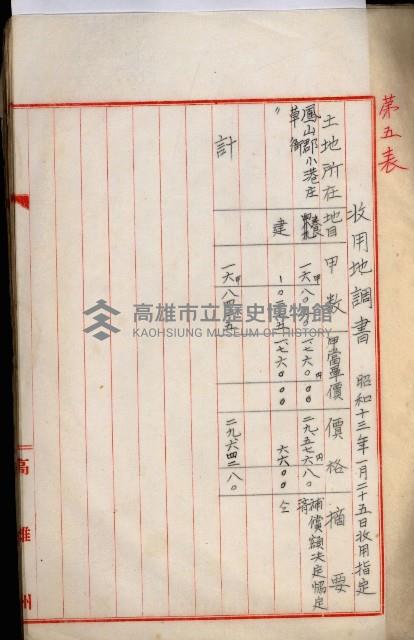 第五表
收用地調書 昭和十三年一月二十五日收用指定
土地所在 地目 甲数 甲當單價 價格 摘要
鳳山郡小港庄草衙 養 一六八〇 一七六〇 二九五七六八〇 補償額決定協定濟
〃 建 六六〇〇 仝
計 一六八四 二九六四二八〇
高雄州
高雄市立歷史博物館
KAOHSIUNG MUSEUM OF HISTORY